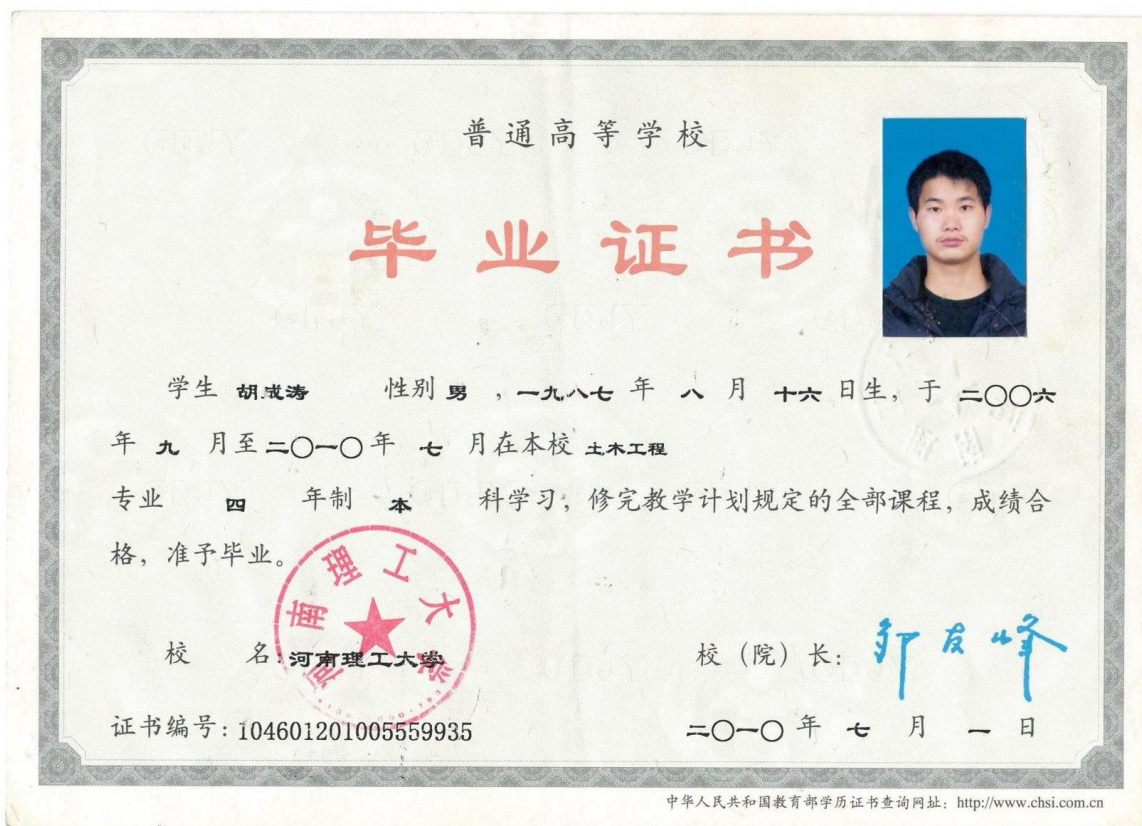 普通高等学校
毕业证书
学生 胡成涛 性别 男 ，一九八七 年 八 月 十六 日生，于 二〇〇六
年 九 月至 二〇一〇 年 七 月在本校 土木工程
专业 四 年制 本 科学习，修完教学计划规定的全部课程，成绩合
格，准予毕业。
河南理工大学
校 名：河南理工大学
校（院）长：邹友峰
证书编号：104601201005559935
二〇一〇 年 七 月 一 日
中华人民共和国教育部学历证书查询网址：http://www.chsi.com.cn